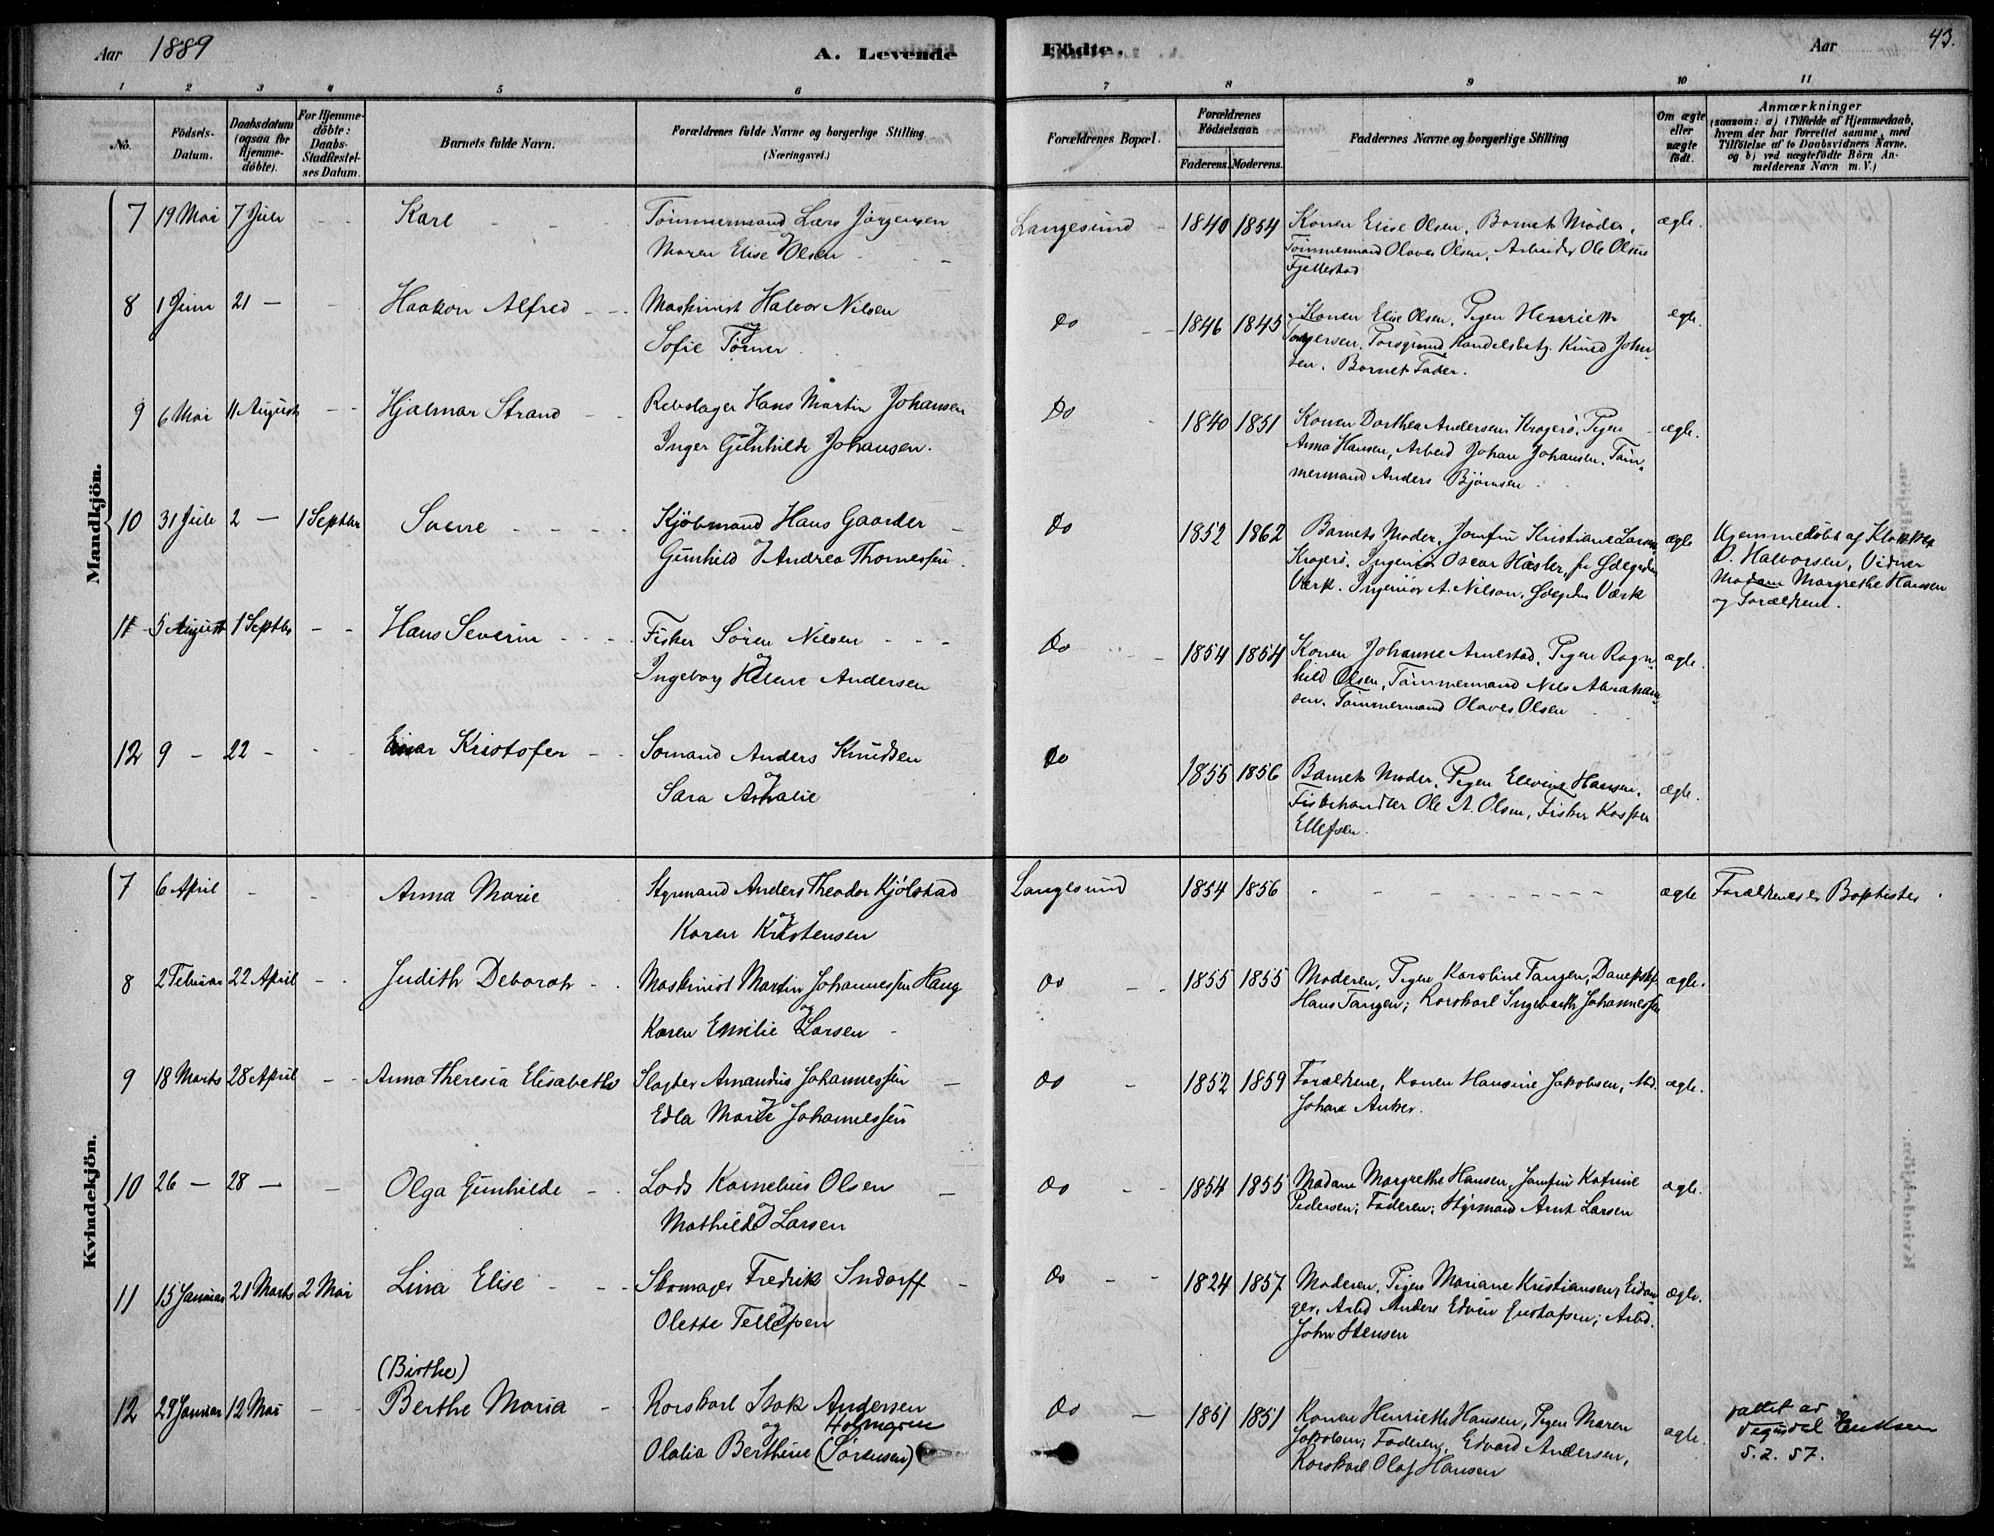 Aar 1889
A. Levende
Födte.
Aar
43.
1 2 3 4 5 6 7 8 9 10 11
No.
Födsels-
Datum.
Daabsdatum
(ogsaa for
Hjemme-
döbte).
For Hjemme-
döbte:
Daabs-
Stadfæstel-
ses Datum.
Barnets fulde Navn.
Forældrenes fulde Navne og borgerlige Stilling
(Næringsvei.)
Forældrenes Bopæl.
Forældrenes
Födselsaar.
Faderens. Moderens.
Faddernes Navne og borgerlige Stilling
Om ægte
eller
uægte
födt.
Anmærkninger
(saasom: a) i Tilfælde af Hjemmedaab,
hvem der har forrettet samme, med
Tilföielse af to Daabsvidners Navne.
og b) ved uægtefödte Börn An-
melderens Navn m. V.)
Mandkjön.
7 19 Mai 7 Juli - - Karl - - Tømmermand Lars Jörgensen
og
Maren Elise Olsen
Langesund - 1840 1854 Konen Elise Olsen, Barnets Moder,
Tømmermand Olaves Olsen, Arbeider Ole Olsen
Fjellestad
ægte.
8 1 Juni 21 - - - Haakon Alfred - - Maskinist Halvor Nilsen
og
Sofie Törner
Do - - 1846 1845 Konen Elise Olsen, Pigen Henriette
Torgersen, Porsgrund Handelsbetj. Knud John-
sen. Barnets Fader.
ægte.
9 6 Mai 11 August - - Hjalmar Strand - - Rebslager Hans Martin Johansen
og
Inger Gunhilde Johansen.
Do - 1840 1851 Konen Dorthea Andersen Kragerö, Pigen
Anna Hansen, Arbeid Johan Johansen, Töm-
mermand Anders Björnsen
ægte.
10 31 Juli 2 - 1 Septbr Sverre - - - Kjöbmand Hans Gaarder -
og
Gunhild Andrea Thomessen.
Do 1852 1862 Barnets Moder, Jomfru Kristiane Larsen
Kragerö, Ingeniör Oscar Hasler, fr Ødegaden
Værk. Ingeniör A. Nilson, Ødegden Værk
ægte
Hjemmedöbt af Klokker
O. Halvorsen, Vidner
Madam Margrethe Hansen
og Forældrene.
11 5 August 1 Septbr - - Hans Severin - - - Fisker Sören Nilsen - - -
og
Ingeborg Helene Andersen
Do - 1854 1854 Konen Johanne Arnestad, Pigen Ragn-
hild Olsen, Tömmermand Nils Abraham-
sen. Tömmermand Olaves Olsen
ægte.
12 9 - 22 - - - Einar Kristofer - - Sömand Anders Knudsen
og
Sara Amalie
Do 1855 1856 Barnets Moder, Pigen Elevine Hansen,
Fiskehandler Ole A. Olsen, Fisker Kasper
Ellefsen.
ægte.
Kvindekjön.
7 6 April - - Anna Marie Styrmand Anders Theodor Kjölstad
og
Karen Kristensen
Langesund 1854 1856 - - - - - - - - ægte Forældrene er Baptister.
8 2 Februar 22 April - - Judith Deborah - Maskinist Martin Johannessen Haug
og
Karen Emilie Larsen -
Do - - 1855 1855 Moderen, Pigen Karoline Tangen,
Hans Tangen; Rorskarl Ingebarth Johannessen
ægte.
9 18 Marts 28 April - - Anna Theresia Elisabeths Slagter Amandus Johannessen -
og
Edla Marie Johannessen
Do - 1852 1859 Forældrene, Konen Hansine Jakobsen,
Johan Anker.
ægte.
10 26 - 28 - - Olga Gunhilde - Lods Kornelius Olsen -
og
Mathilde Larsen
Do - - 1854 1855 Madam Margrethe Hansen, Jomfru Katrine
Pedersen; Faderen; Styrmand Arnt Larsen
ægte.
11 15 Januar 21 Marts 2 Mai Lina Elise - - - Skomager Fredrik Indorff -
og
Olette Tellefsen
Do - - 1824 1857 Moderen, Pigen Mariane Kristiansen, Eidan-
ger, Arbd Anders Edvin Gustafsen; Arbd.
John Stensen
ægte.
(Birthe)
12 29 Januar 12 Mai - - Berthe Maria - Rorskarl Isak Andersen
og Holmgren
Olalia Berthine (Sörensen)
Do - 1851 1851 Konen Henriette Hansen, Pigen Maren
Jakobsen; Faderen, Edvard Andersen,
Rorskarl Olaf Hansen
ægte.
Eriksen
5.2.57.